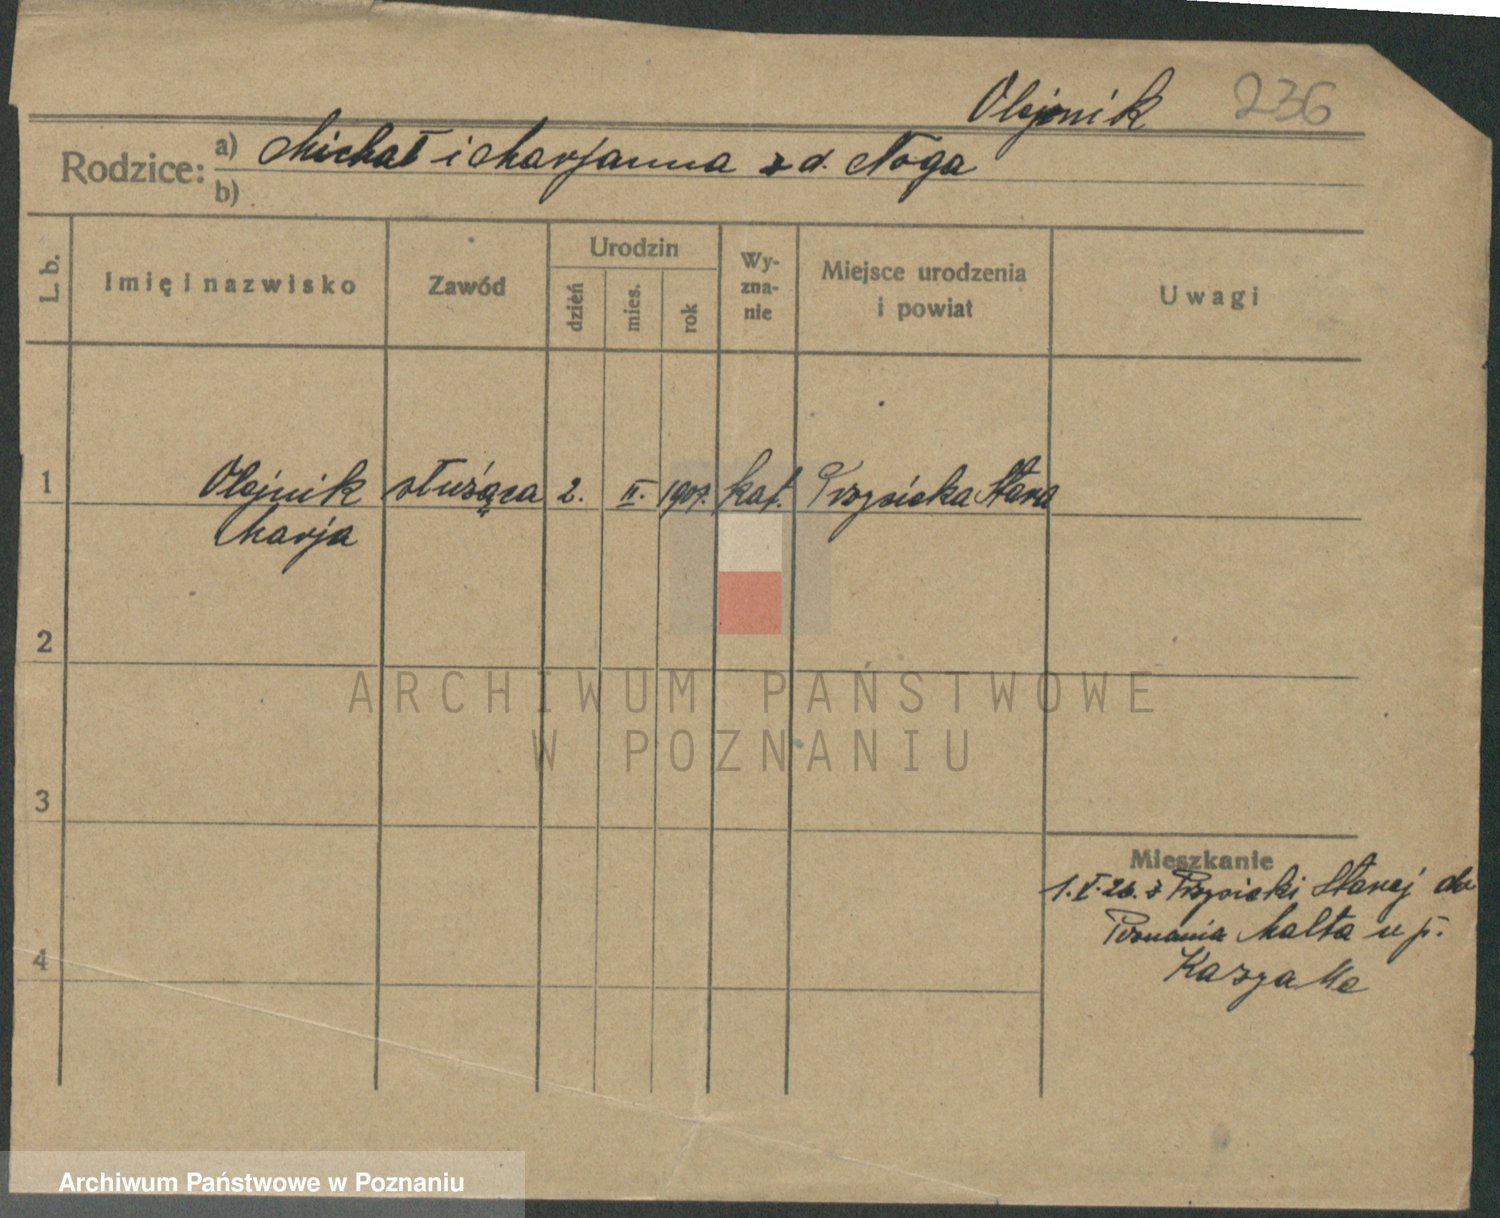 Olejnik 236
Rodzice: a) Michał i Marjanna z d. Noga
b)
L. b. Imię i nazwisko Zawód Urodzin dzień mies. rok Wyznanie Miejsce urodzenia i powiat Uwagi
1 Olejnik służąca 2. II. 1907. kat. Przysieka Stara
Marja
2
ARCHIWUM PAŃSTWOWE
W POZNANIU
3
Mieszkanie
1. V. 26. z Przysieki Starej do
Poznania Malta u p.
4
Archiwum Państwowe w Poznaniu